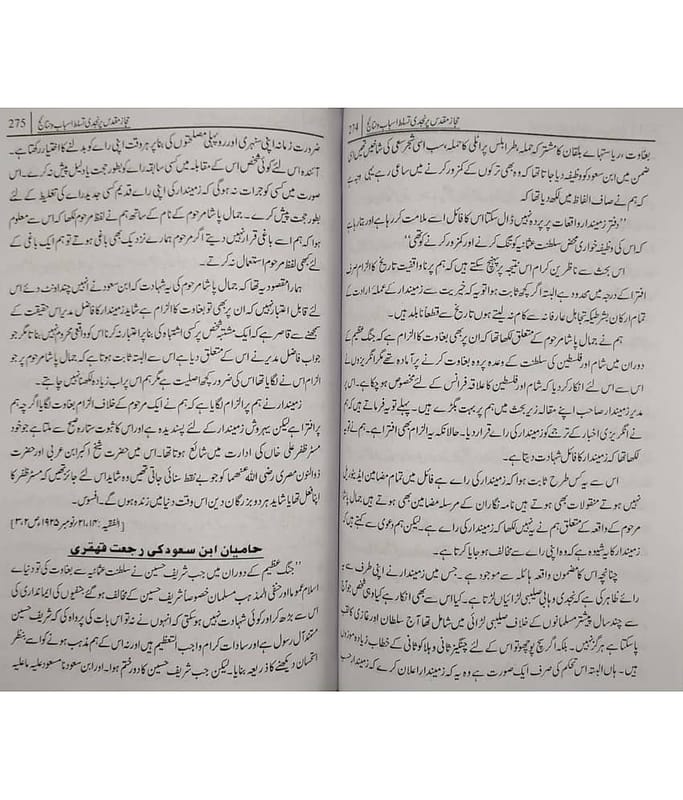 حجاز مقدس پر نجدی تسلط اسباب و نتائج
274
بغاوت، ریاستہائے بلقان کا مشترکہ حملہ، طرابلس پر اٹلی کا حملہ، سب اسی شجر سعی کی شاخیں تھیں اس
ضمن میں ابن سعود کو وظیفہ دیا جاتا تھا کہ وہ بھی ترکوں کے کمزور کرنے میں ساعی رہے
کہ ہم نے صاف الفاظ میں لکھ دیا تھا کہ
”دفتر زمیندار واقعات پر پردہ نہیں ڈال سکتا اس کا فائل اسے ملامت کر رہا ہے اور بتا رہا ہے
کہ اس کی وظیفہ خواری محض سلطنت عثمانیہ کو تنگ کرنے اور کمزور کرنے کو تھی“
اس بحث سے ناظرین کرام اس نتیجہ پر پہنچ سکتے ہیں کہ ہم پر ناواقفیت تاریخ کا الزام صرف
افترا کے درجہ میں محدود ہے البتہ اگر کچھ ثابت ہوا تو یہ کہ خیریت سے زمیندار کے عملہ ادارت کے
تمام ارکان بشرطیکہ تجاہل عارفانہ سے کام نہ لیتے ہوں تاریخ سے قطعاً نابلد ہیں۔
ہم نے جمال پاشا مرحوم کے متعلق لکھا تھا کہ ان پر بھی بغاوت کا الزام ہے کہ جنگ عظیم کے
دوران میں شام اور فلسطین کی سلطنت کے وعدہ پر وہ بغاوت کرنے پر آمادہ تھے مگر انگریزوں نے
اس سے اس لئے انکار کر دیا کہ شام اور فلسطین کا علاقہ فرانس کے لئے مخصوص ہو چکا ہے۔ اس پر
مدیر زمیندار صاحب اپنے مقالہ زیر بحث میں ہم پر بہت بگڑے ہیں۔ پہلے تو یہ فرماتے ہیں کہ ہم
نے انگریزی اخبار کے ترجمے کو زمیندار کی رائے قرار دیا۔ حالانکہ یہ الزام بھی افترا ہے۔ ہم نے تو یہ
لکھا تھا کہ زمیندار کا فائل شہادت دیتا ہے۔
اس سے یہ کس طرح ثابت ہوا کہ زمیندار کی رائے ہے فائل میں تمام مضامین ایڈیٹوریل
نہیں ہوتے منقولات بھی ہوتے ہیں نامہ نگاران کے مرسلہ مضامین بھی ہوتے ہیں جمال پاشا
مرحوم کے واقعہ کے متعلق ہم نے یہ نہیں لکھا کہ زمیندار کی رائے ہے۔ لیکن ہم دعویٰ سے کہتے ہیں
زمیندار کا یہ شیوہ ہے کہ وہ اپنی رائے سے مخالف ہو جایا کرتا ہے۔
چنانچہ اس کا مضمون واقعہ ہائلہ سے موجود ہے۔ جس میں زمیندار نے اپنی طرف سے یہ
رائے ظاہر کی ہے کہ نجدی وہابی صلیبی لڑائیاں لڑتا ہے۔ کیا اس سے بھی انکار ہے کیا وہی شخص جو آج
سے چند سال پیشتر مسلمانوں کے خلاف صلیبی لڑائی میں شامل تھا آج سلطان اور غازی کا لقب
پا سکتا ہے ہرگز نہیں۔ بلکہ اگر سچ پوچھو تو اس کے لئے چنگیز ثانی و ہلاکو ثانی کے خطاب زیادہ موزوں
ہیں۔ ہاں البتہ اس تحکم کی صرف ایک صورت ہے وہ یہ کہ زمیندار اعلان کرے کہ زمیندار حسب
حجاز مقدس پر نجدی تسلط اسباب و نتائج
275
ضرورت زمانہ اپنی سنہری اور روپہلی مصلحتوں کی بنا پر ہر وقت اپنی رائے کو بدلنے کا اختیار رکھتا ہے۔
آئندہ اس لئے کوئی شخص اس کے مقابلہ میں کسی سابقہ رائے کو بطور حجت یا دلیل پیش نہ کرے۔ اس
صورت میں کسی کو جرات نہ ہوگی کہ زمیندار کی اپنی رائے قدیم کسی جدید رائے کی تغلیط کے لئے
بطور حجت پیش کرے۔ جمال پاشا مرحوم کے نام کے ساتھ ہم نے لفظ مرحوم لکھا کہ اس سے معلوم
ہوا کہ ہم اسے باغی قرار نہیں دیتے اگر مرحوم ہمارے نزدیک بھی باغی ہوتے تو ہم ایک باغی کے
لئے بھی لفظ مرحوم استعمال نہ کرتے۔
ہمارا مقصود یہ تھا کہ جمال پاشا مرحوم کی یہ شہادت کہ ابن سعود نے انہیں چند اونٹ دئے اس
لئے قابل اعتبار نہیں کہ ان پر بھی تو بغاوت کا الزام ہے شاید زمیندار کا فاضل مدیر اس حقیقت کے
سمجھنے سے قاصر ہے کہ ایک مشتبہ شخص پر کسی اشتباہ کی بنا پر اعتبار نہ کرنا اس کو واقعی مجرم نہیں بناتا مگر جو
جواب فاضل مدیر نے اس کے متعلق دیا ہے اس سے البتہ ثابت ہوتا ہے کہ جمال پاشا مرحوم پر جو
الزام اس نے لگایا تھا اس کی ضرور کچھ اصلیت ہے مگر ہم اس پر اب زیادہ لکھنا نہیں چاہتے۔
زمیندار نے ہم پر الزام لگایا ہے کہ ہم نے ایک مرحوم کے خلاف الزام بغاوت لگایا اگرچہ ہم
پر افترا ہے لیکن یہ روش زمیندار کے لئے پسندیدہ ہے اور اس کا ثبوت ستارہ صبح سے ملتا ہے جو خود
مسٹر ظفر علی خاں کی ادارت میں شائع ہوتا تھا۔ اس میں حضرت شیخ اکبر ابن عربی اور حضرت
ذوالنون مصری رضی اللہ عنھما کو جو بے نقط سنائی جاتی تھیں وہ شاید اس لئے جائز تھیں کہ مسٹر ظفر کا
اپنا فعل تھا یا شاید ہر دو بزرگان دین اس وقت دنیا میں زندہ ہوں گے۔ افسوس۔
[الفقیہ: ۱۴، ۲۱ نومبر ۱۹۲۵ء ص ۲، ۳]
حامیان ابن سعود کی رجعت قہقری
”جنگ عظیم کے دوران میں جب شریف حسین نے سلطنت عثمانیہ سے بغاوت کی تو دنیائے
اسلام عموماً اور حنفی المذہب مسلمان خصوصاً شریف حسین کے مخالف ہو گئے حنفیوں کی ایمانداری کی
اس سے بڑھ کر اور کوئی شہادت نہیں ہو سکتی کہ انہوں نے نہ تو اس بات کی پرواہ کی کہ شریف حسین
متحد آل رسول ہے اور سادات کرام واجب التعظیم ہیں اور نہ اس کے ہم مذہب ہونے کو اسے بنظر
استحسان دیکھنے کا ذریعہ بنایا۔ لیکن جب شریف حسین کا دور ختم ہوا۔ اور ابن سعود نا مسعود علیہ ما علیہ